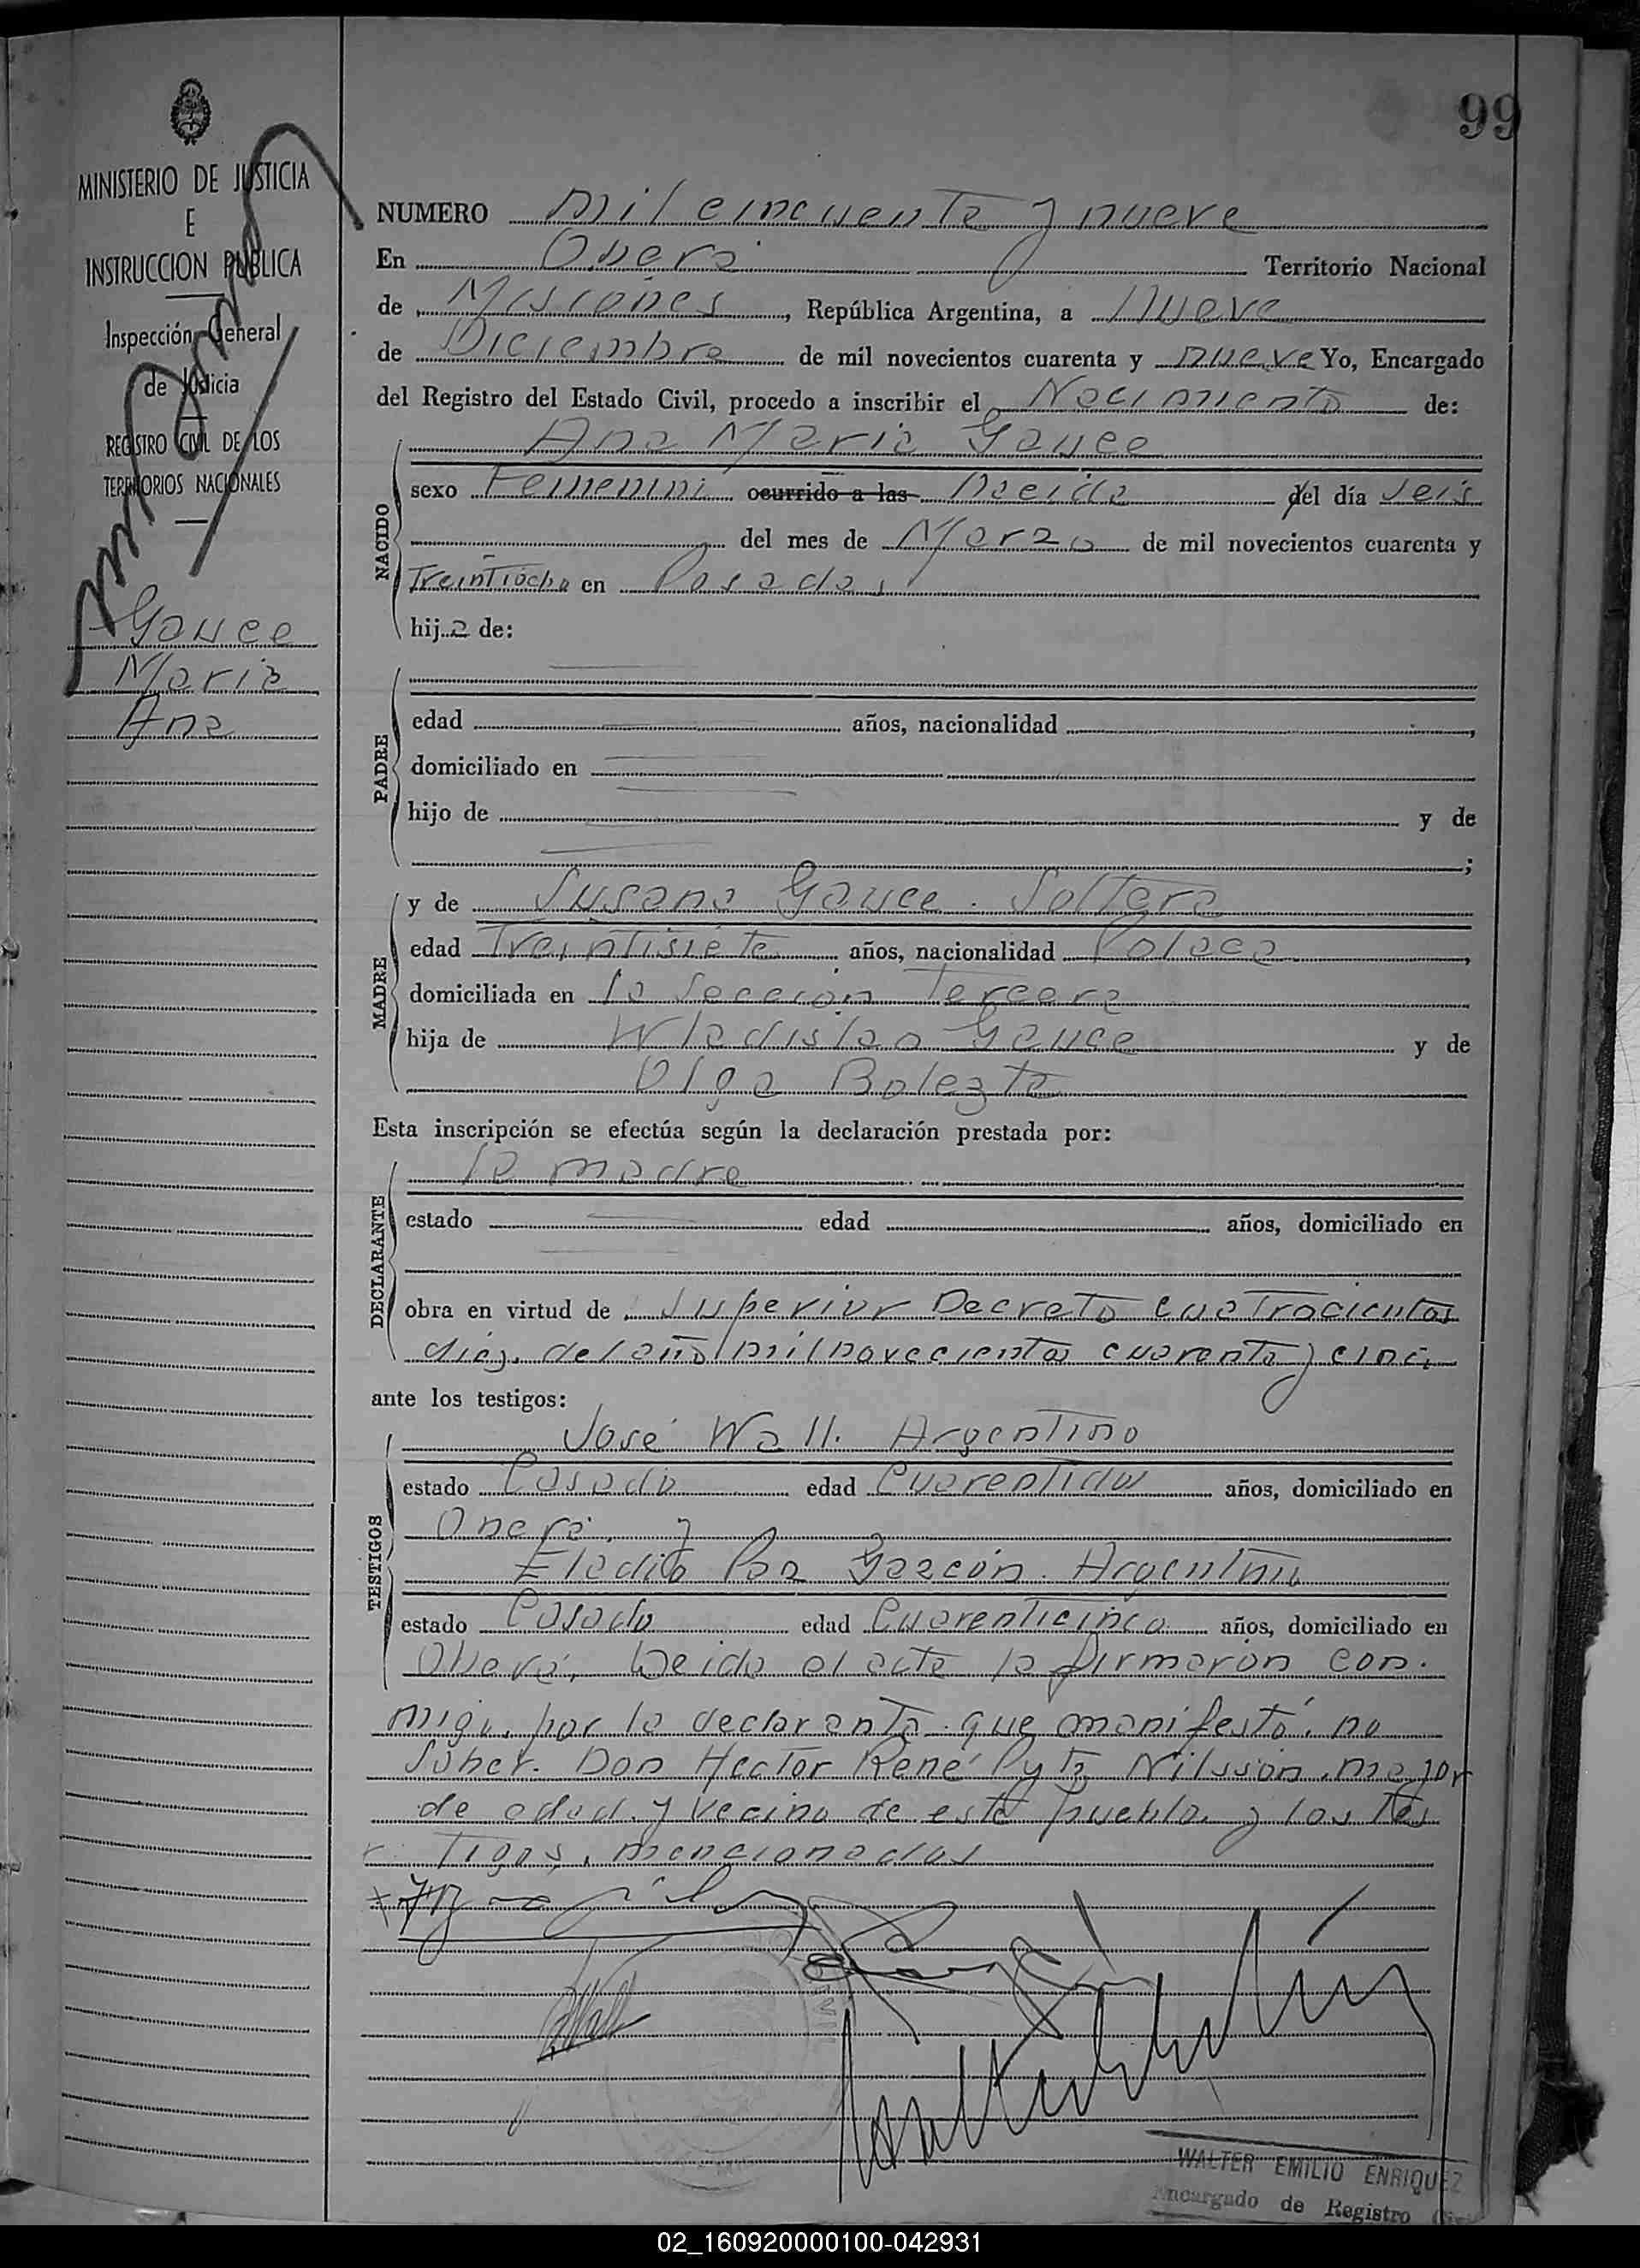 99
MINISTERIO DE JUSTICIA
E
INSTRUCCION PUBLICA
Inspección General
de Justicia
REGISTRO CIVIL DE LOS
TERRITORIOS NACIONALES
Gauce
Maria
Ana
NUMERO mil cincuenta y nueve
En Oberá Territorio Nacional
de Misiones, República Argentina, a nueve
de Diciembre de mil novecientos cuarenta y nueve Yo, Encargado
del Registro del Estado Civil, procedo a inscribir el Nacimiento de:
Ana Maria Gauce
NACIDO
sexo Femenino ocurrido a las Nacida del día seis
del mes de Marzo de mil novecientos cuarenta y
Treintiocho en Posadas
hija de:
PADRE
edad años, nacionalidad ,
domiciliado en
hijo de y de
;
MADRE
y de Susana Gauce. Soltera
edad Treintisiete años, nacionalidad Polaca ,
domiciliada en la Sección Tercera
hija de Wladislao Gauce y de
Olga
Esta inscripción se efectúa según la declaración prestada por:
DECLARANTE
la madre
estado edad años, domiciliado en
obra en virtud de Superior Decreto cuatrocientos
diez, del año mil novecientos cuarenta y cinco
ante los testigos:
TESTIGOS
José Wall. Argentino
estado Casado edad Cuarentidos años, domiciliado en
Oberá. y
Eladio Paz Garzón. Argentino
estado Casado edad Cuarenticinco años, domiciliado en
Oberá, Leida el acta la firmaron con.
migo, por la declarante que manifestó, no
saber. Don Hector René Nilsson, mayor
de edad, y vecino de este pueblo, y los tes
tigos, mencionados
WALTER EMILIO ENRIQUEZ
Encargado de Registro
02_160920000100-042931